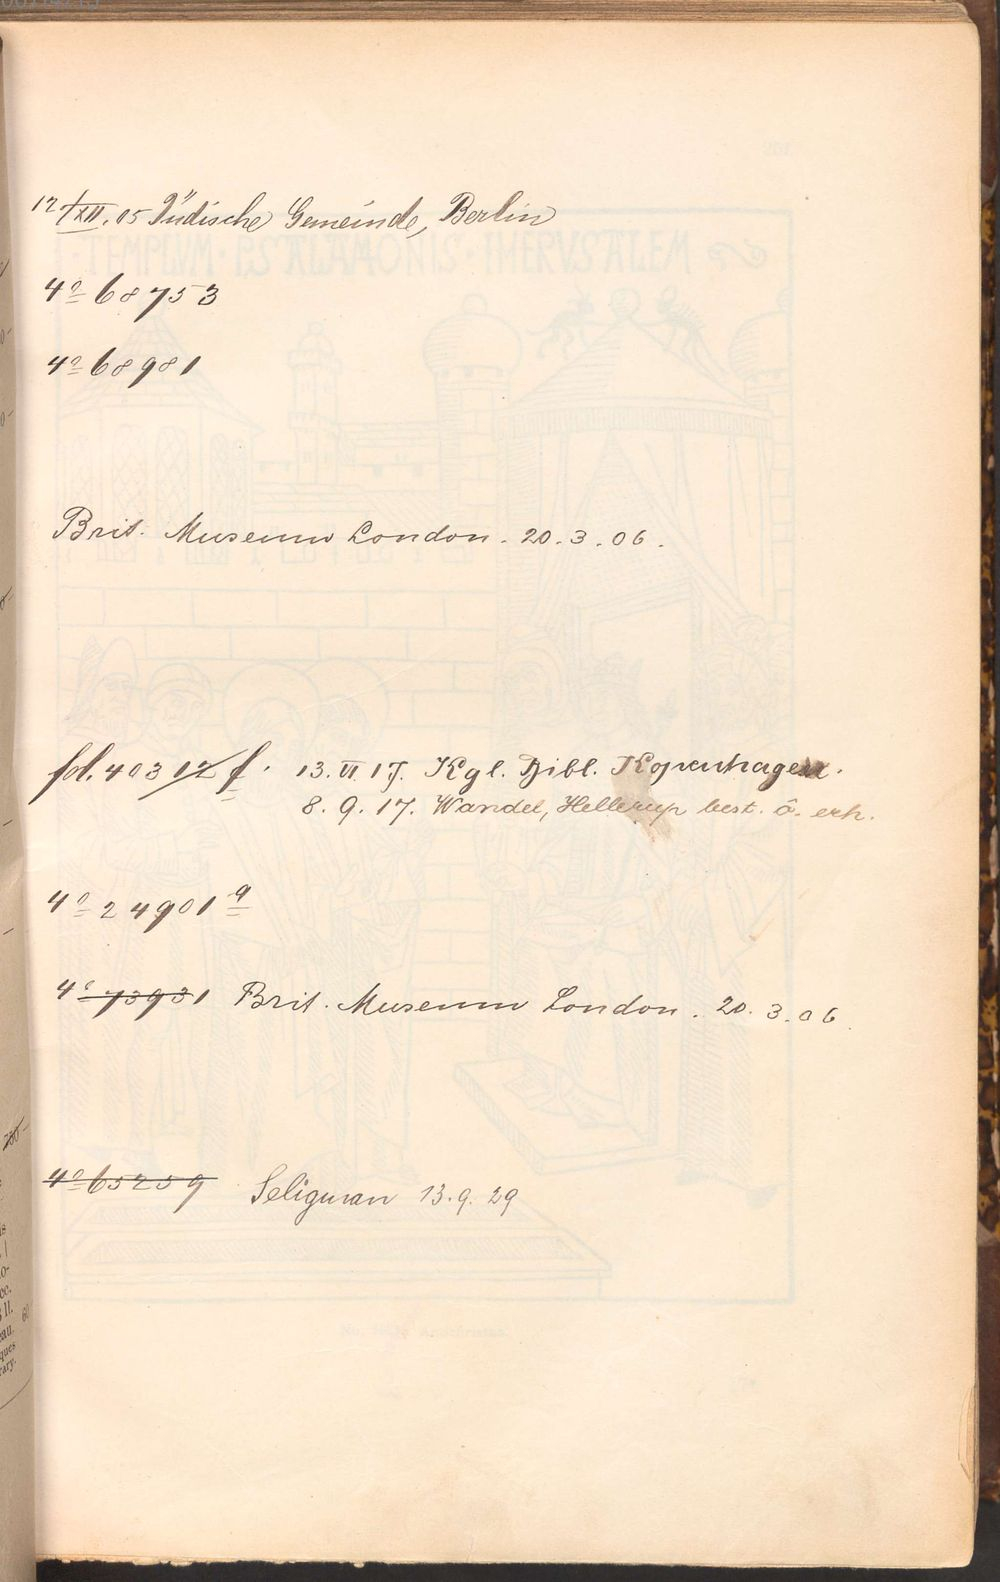 12/XII. 05 Jüdische Gemeinde, Berlin
4º 68753
4º 68981
Brit. Museum London. 20.3.06.
fol. 40312 f. 13.VI 17. Kgl. Bibl. Kopenhagen.
8. 9. 17. Wandel, Hellerup best. ö. erh.
4º 24901 a
4º 73931 Brit. Museum London. 20.3.06
4º 65259 Seligman 13.9.29